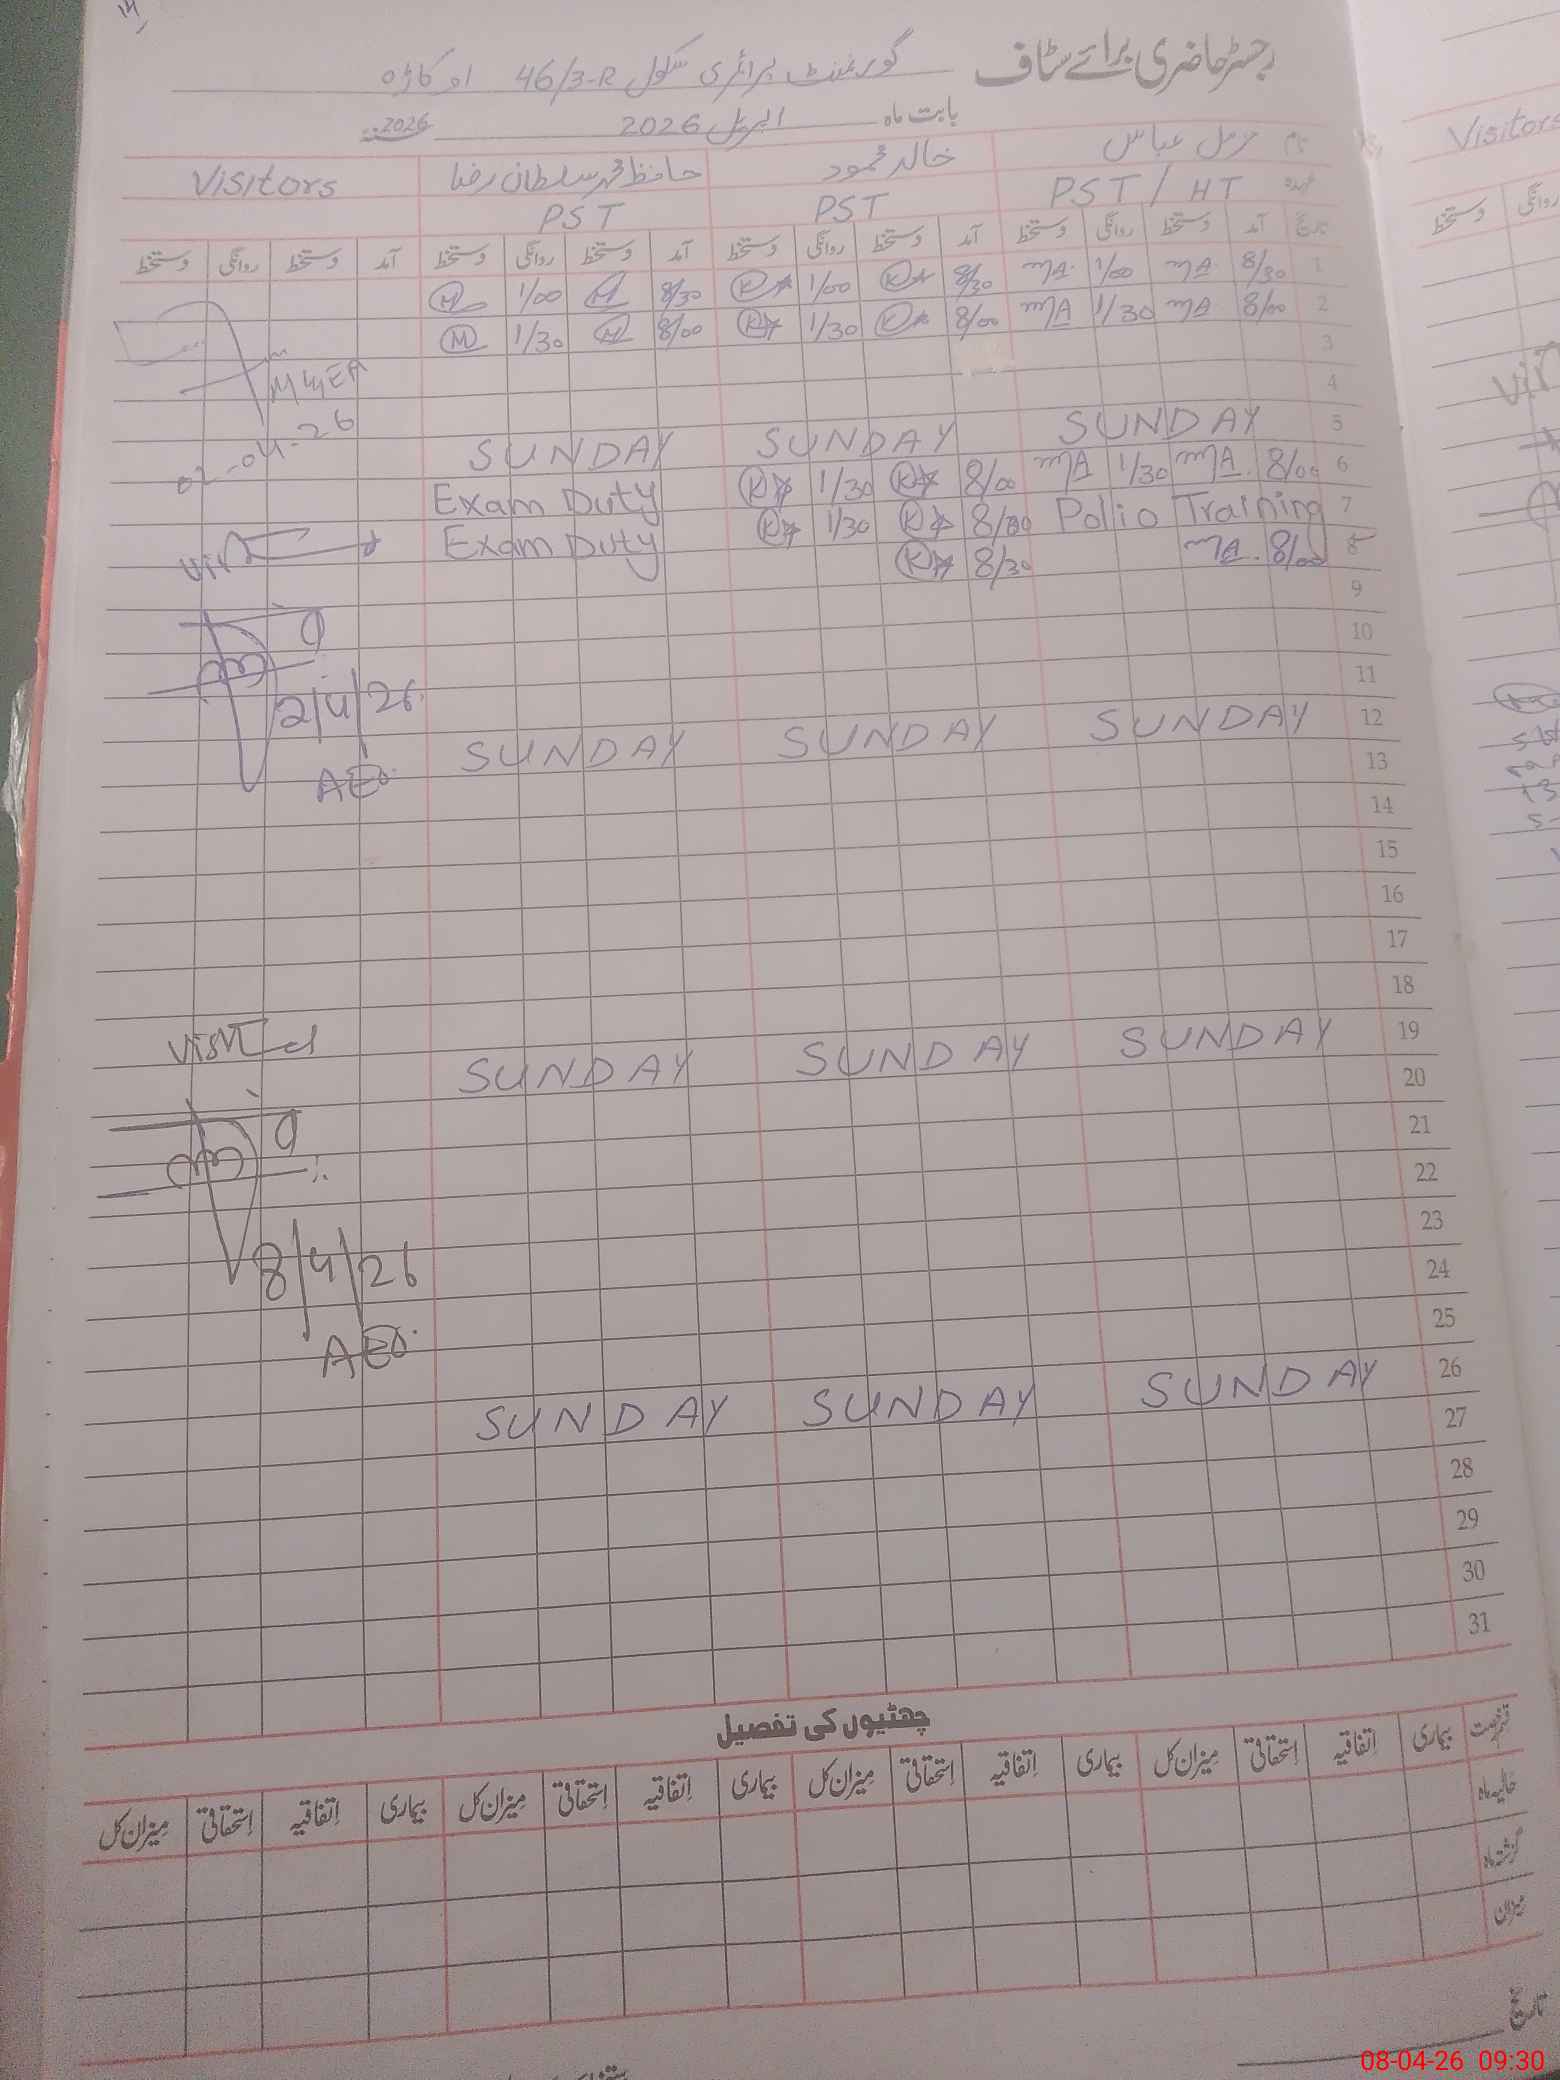 رجسٹر حاضری برائے سٹاف گورنمنٹ پرائمری سکول 46/3-R اوکاڑہ
بابت ماہ اپریل 2026 2026
نام مزمل عباس خالد محمود حافظ محمد سلطان رضا Visitors
عہدہ PST / HT PST PST
تاریخ آمد دستخط روانگی دستخط آمد دستخط روانگی دستخط آمد دستخط روانگی دستخط آمد دستخط روانگی دستخط
1 8/30 MA 1/00 MA 8/30 K 1/00 K 8/30 M 1/00 M
2 8/00 MA 1/30 MA 8/00 K 1/30 K 8/00 M 1/30 M
3
MEA
4
02-04-26
5 SUNDAY SUNDAY SUNDAY
6 8/00 MA 1/30 MA 8/00 K 1/30 K Exam Duty
7 Polio Training 8/00 K 1/30 K Exam Duty
8 8/00 MA 8/30 K
9
10
11
2/4/26
12 SUNDAY SUNDAY SUNDAY
AEO
13
14
15
16
17
18
19 SUNDAY SUNDAY SUNDAY
Visited
20
21
22
23
8/4/26
24
25
AEO
26 SUNDAY SUNDAY SUNDAY
27
28
29
30
31
چھٹیوں کی تفصیل
قسم رخصت بیماری اتفاقیہ استحقاقی میزان کل بیماری اتفاقیہ استحقاقی میزان کل بیماری اتفاقیہ استحقاقی میزان کل بیماری اتفاقیہ استحقاقی میزان کل
حالیہ ماہ
گزشتہ ماہ
میزان
تاریخ
Visitors
دستخط روانگی
08-04-26 09:30